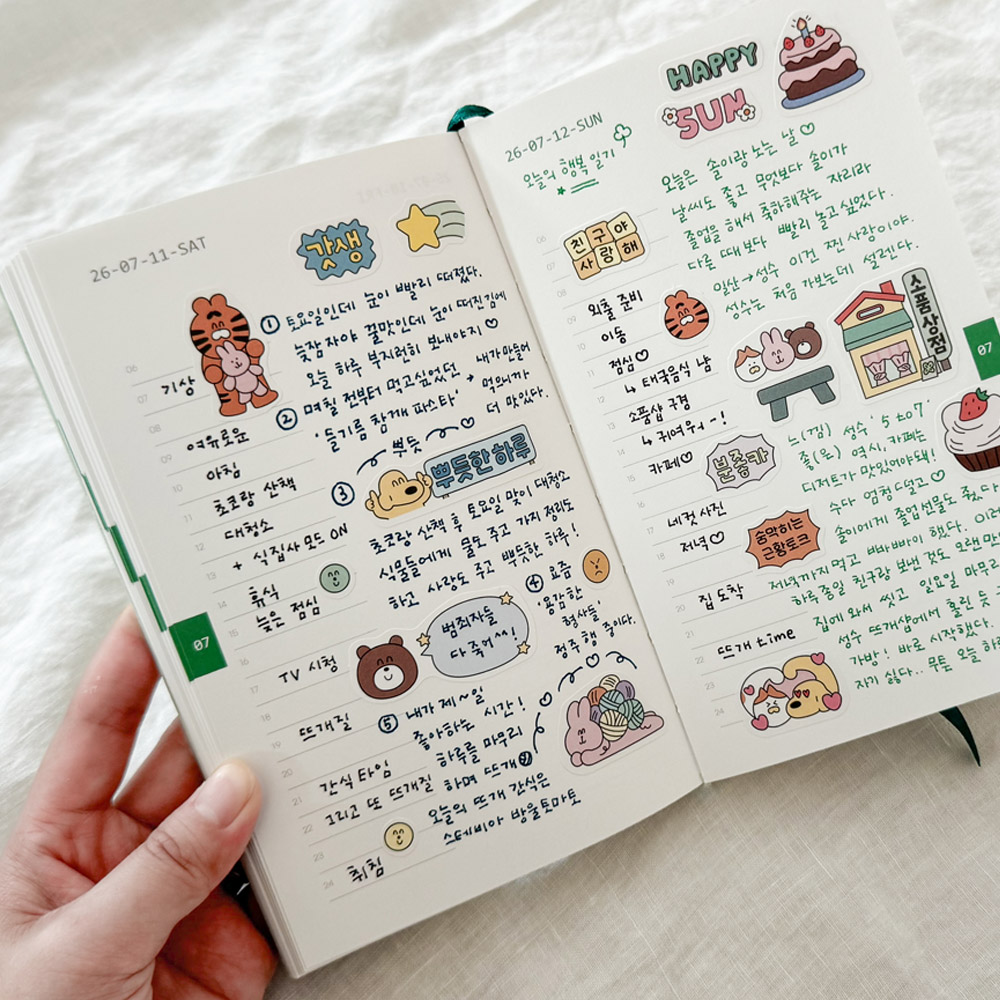 26-07-11-SAT
갓생
① 토요일인데 눈이 빨리 떠졌다.
늦잠 자야 꿀맛인데 눈이 떠진 김에
오늘 하루 부지런히 보내야지♡
② 며칠 전부터 먹고싶었던
'들기름 참깨 파스타'
→ 내가 만들어
먹으니까
더 맛있다.
뿌듯
③
뿌듯한 하루
초코랑 산책 후 토요일 맞이 대청소
식물들에게 물도 주고 가지 정리도
하고 사랑도 주고 뿌듯한 하루!
④ 요즘
'용감한
형사들'
정주행 중이다.
범죄자들
다 죽어^^!
⑤ 내가 제~일
좋아하는 시간!
하루를 마무리
하며 뜨개
오늘의 뜨개 간식은
스테비아 방울토마토
06
07 기상
08
09 여유로운
10 아침
11 초코랑 산책
12 대청소
+ 식집사 모드 ON
13
14 휴식
15 늦은 점심
16
17 TV 시청
18
19 뜨개질
20
21 간식 타임
그리고 또 뜨개질
23
24 취침
07
26-07-12-SUN
오늘의 행복 일기
HAPPY
SUN
오늘은 솔이랑 노는 날♡
날씨도 좋고 무엇보다 솔이가
졸업을 해서 축하해주는 자리라
다른 때보다 빨리 놀고 싶었다.
일산→성수 이건 찐 사랑이야.
성수는 처음 가보는데 설렌다.
친구야
사랑해
소품상점
06
07
08
09 외출 준비
10 이동
11 점심♡
12 ↳ 태국음식 냠
13 소품샵 구경
14 ↳ 귀여워~!
카페♡
분좋카
16
17 네컷 사진
18 저녁♡
숨막히는
근황토크
19
20 집 도착
21
22 뜨개 time
23
24
느(낌) 성수 '5 to 7'
좋(은) 역시, 카페는
디저트가 맛있어야돼!
수다 엄청 떨고♡
솔이에게 졸업선물도 줬다
빠빠이 했다. 이러
저녁까지 먹고
하루종일 친구랑 보낸 것도 오랜만
집에 와서 씻고 일요일 마무리
성수 뜨개샵에서 홀린 듯
가방! 바로 시작했다.
자기 싫다.. 무튼 오늘 하
07